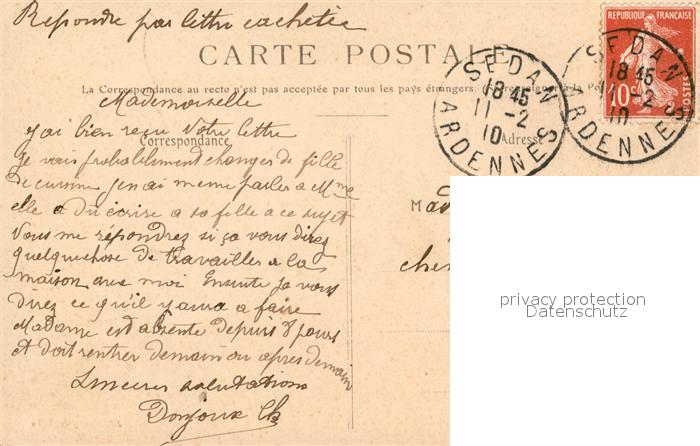 Repondre par lettre cachetée
CARTE POSTALE
La Correspondance au recto n'est pas acceptée par tous les pays étrangers. (Se renseigner à la Po
REPUBLIQUE FRANÇAISE
10c
POSTES
SEDAN
18 45
11 -2
10
ARDENNES
SEDAN
18 45
11 -2
10
ARDENNES
Correspondance
Adresse
Mademoiselle
j'ai bien reçu votre lettre
Je vais probablement changer de fille
de cuisine j'en ai meme parler a Mme
elle a du écrire a sa fille a ce sujet
Vous me repondrez si ça vous direz
quelque chose de travailler a la
maison avec moi Ensuite je vous
direz ce qu'il y aura a faire
Madame est absente depuis 8 jours
et doit rentrer demain ou après demain
Sinceres salutations
M
che
privacy protection
Datenschutz